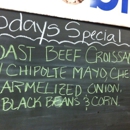 Todays Special
OAST BEEF CROISSAN
CHIPOLTE MAYO, CHE
ARMELIZED ONION,
BLACK BEANS & CORN.